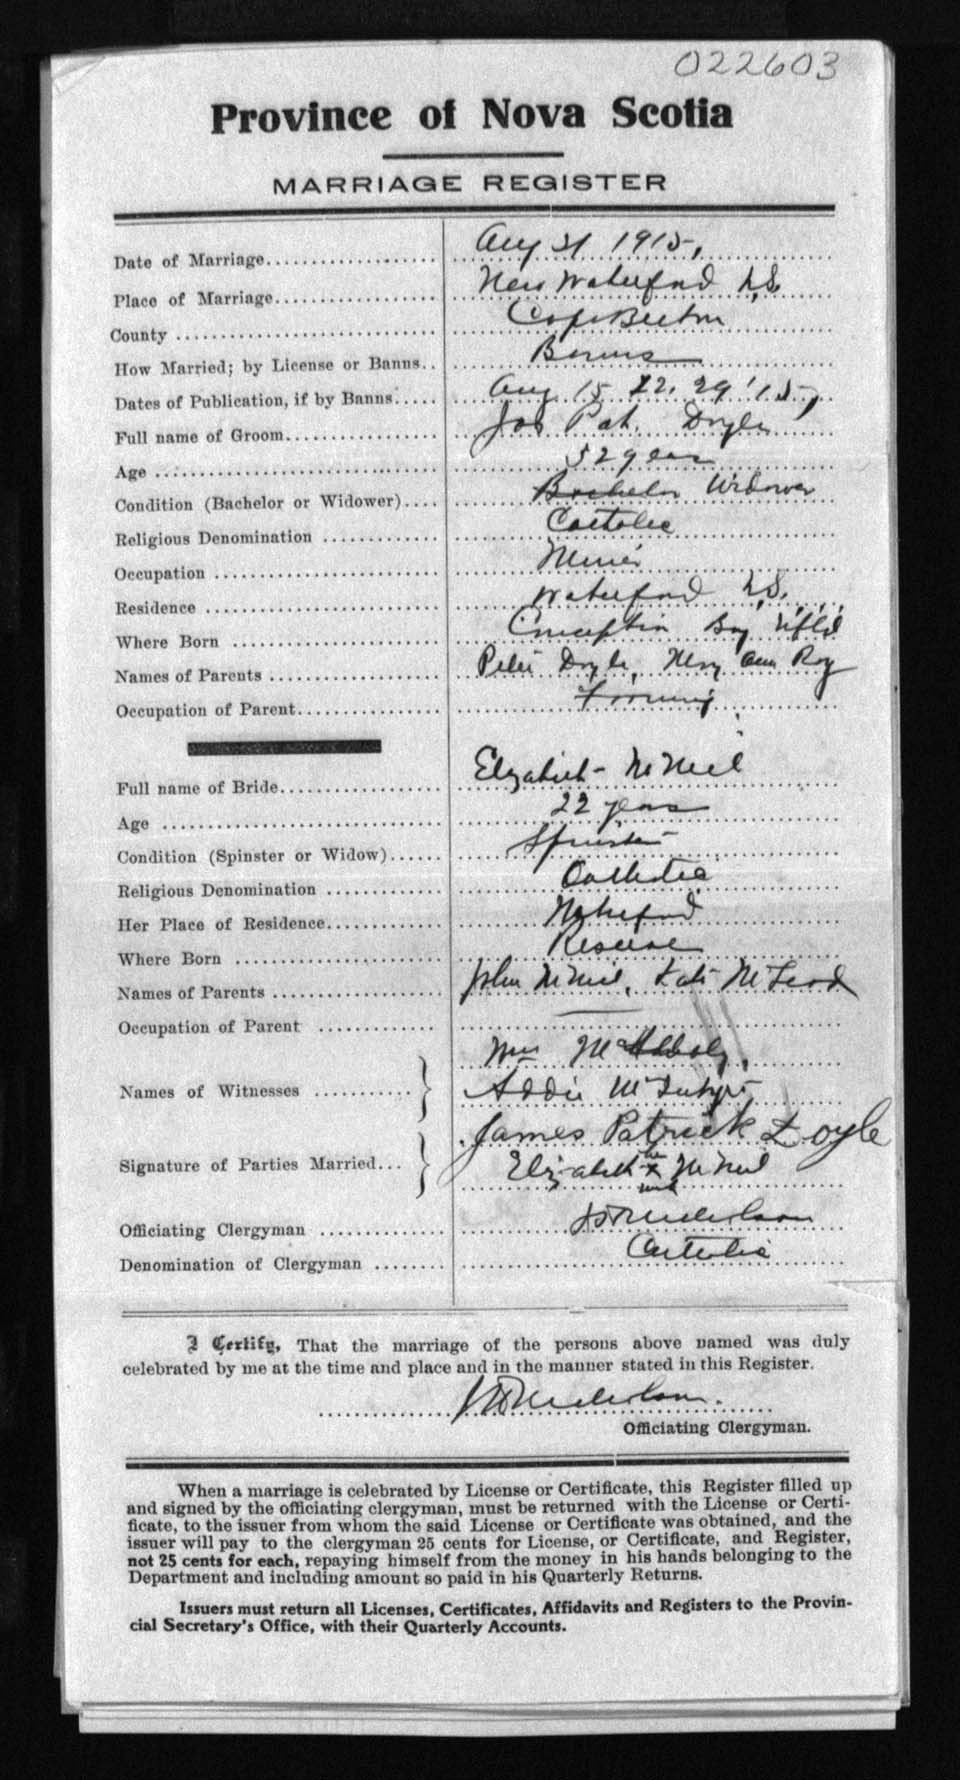 022603
Province of Nova Scotia
MARRIAGE REGISTER
Date of Marriage Aug 31 1915,
Place of Marriage New Waterford N.S.
County Cape Breton
How Married; by License or Banns Banns
Dates of Publication, if by Banns Aug 15 22, 29 '15,
Full name of Groom Jas Pat. Doyle
Age 52 years
Condition (Bachelor or Widower) Bachelor Widower
Religious Denomination Catholic
Occupation Miner
Residence Waterford N.S.
Where Born Conception Bay Nfld
Names of Parents Peter Doyle, Mary Ann
Occupation of Parent
Full name of Bride Elizabeth McNeil
Age 22 years
Condition (Spinster or Widow) Spinster
Religious Denomination Catholic
Her Place of Residence Waterford
Where Born Reserve
Names of Parents John McNeil, Kate McLeod
Occupation of Parent —
Names of Witnesses
Addie McIntyre
Signature of Parties Married James Patrick Doyle
her
Elizabeth x McNeil
mark
Officiating Clergyman
Denomination of Clergyman Catholic
I Certify, That the marriage of the persons above named was duly
celebrated by me at the time and place and in the manner stated in this Register.
Officiating Clergyman.
When a marriage is celebrated by License or Certificate, this Register filled up
and signed by the officiating clergyman, must be returned with the License or Certi-
ficate, to the issuer from whom the said License or Certificate was obtained, and the
issuer will pay to the clergyman 25 cents for License, or Certificate, and Register,
not 25 cents for each, repaying himself from the money in his hands belonging to the
Department and including amount so paid in his Quarterly Returns.
Issuers must return all Licenses, Certificates, Affidavits and Registers to the Provin-
cial Secretary's Office, with their Quarterly Accounts.